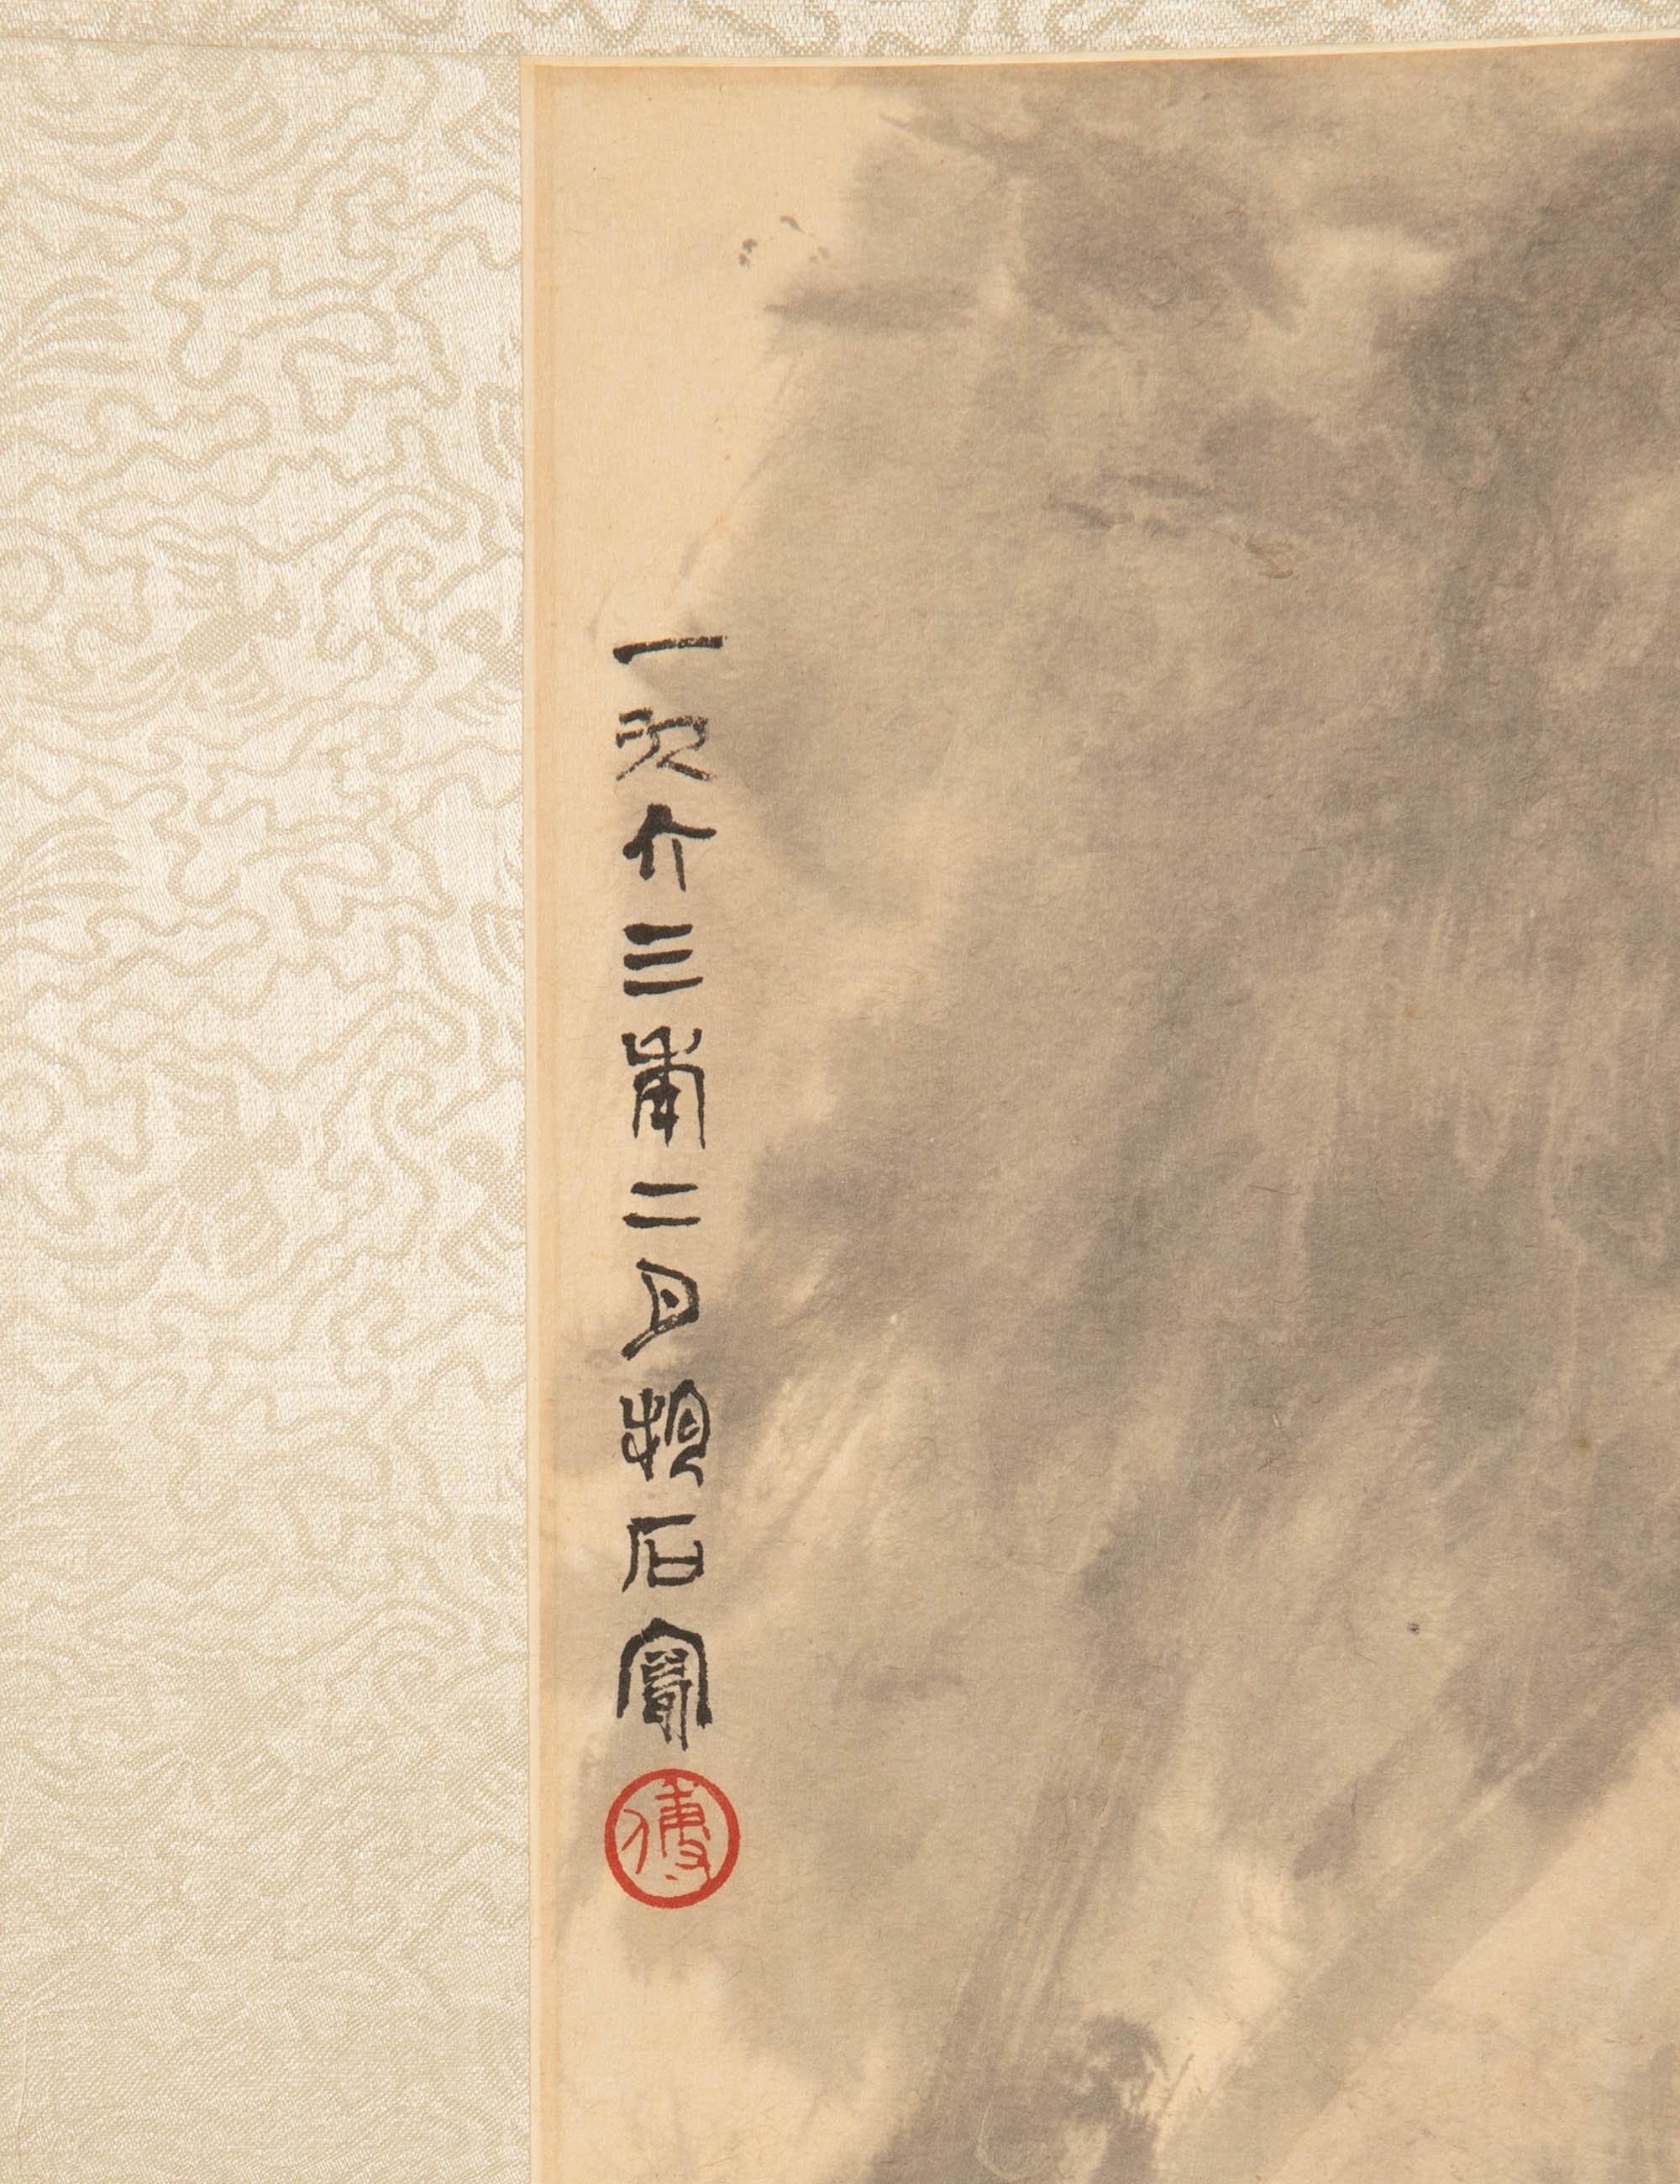 一九六三年二月抱石寫
傅